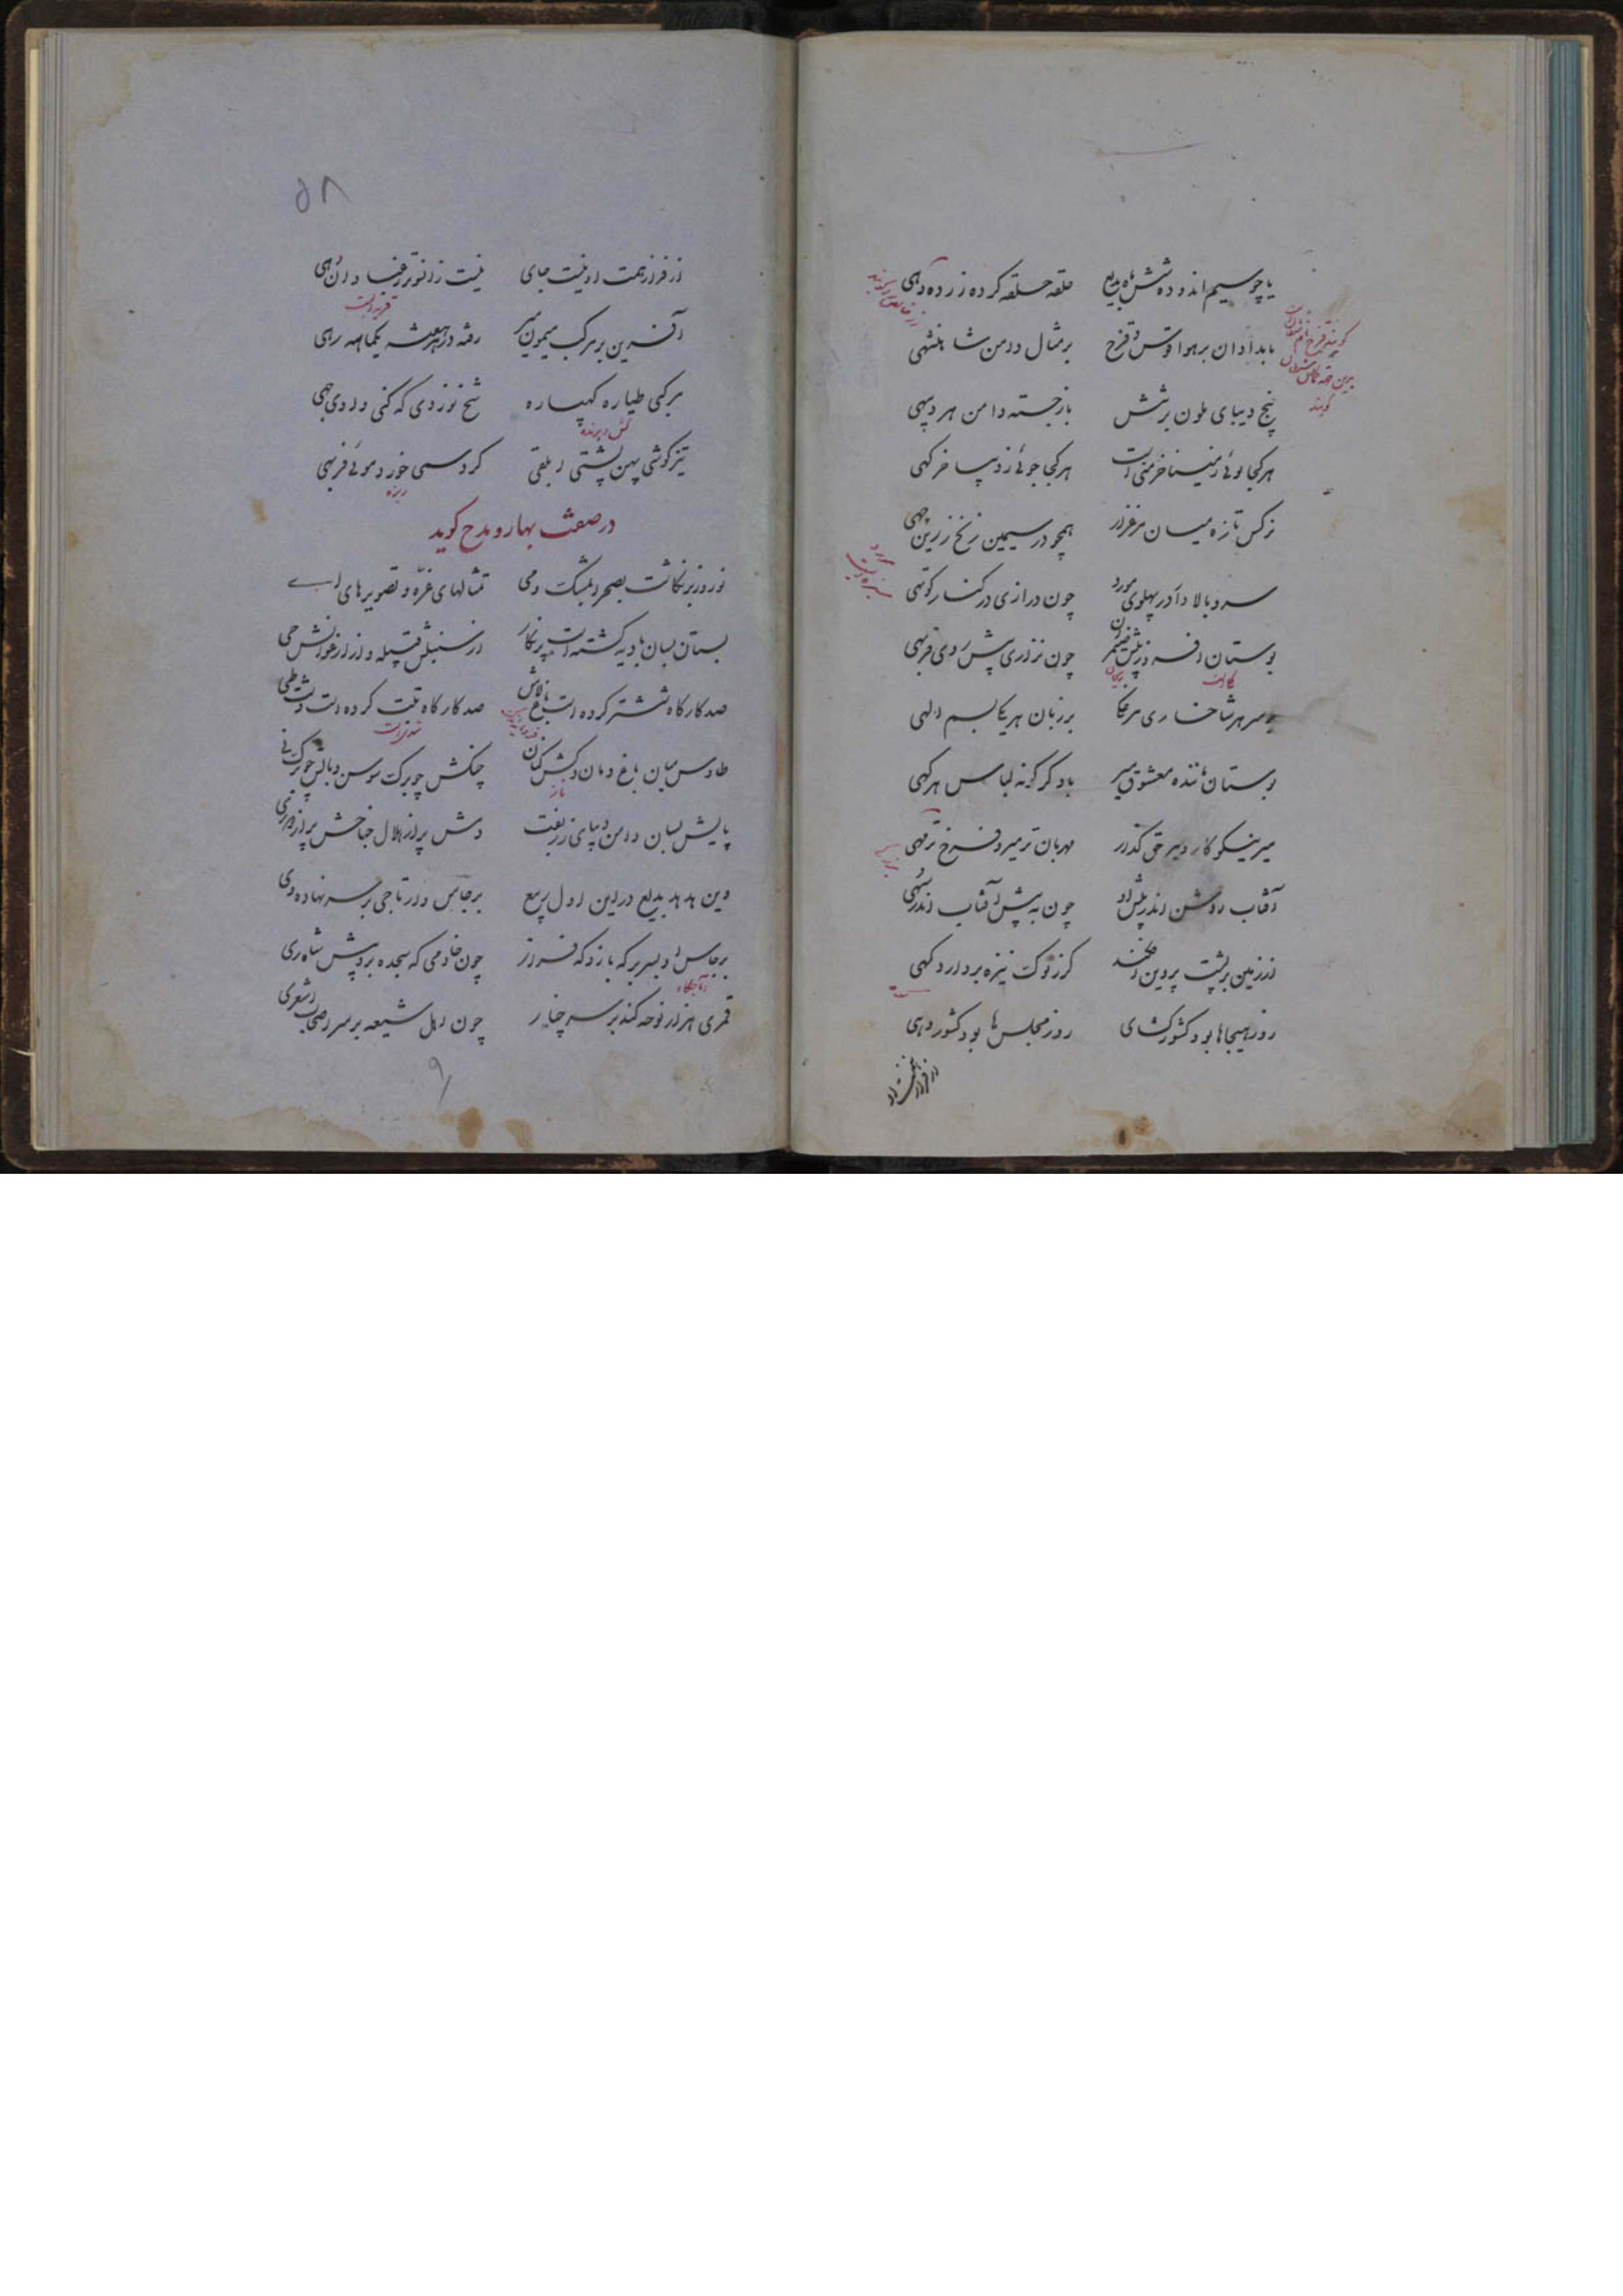 یا چو سیم اندوده شش ماه بدیع   حلقه حلقه کرده زر ده دهی
بامدادان بر هوا قوس و قزح   بر مثال دامن شاهنشهی
پنج دیبای ملون بر تنش   باز جسته دامن هر دیبهی
هر کجا لوئی ز مینا خرمنی است   هر کجا جوئی ز دیبا خرگهی
نرگس تازه میان مرغزار   همچو در سیمین زنخ زرین چهی
سرو بالا دار در پهلوی مورد   چون درازی در کنار کوتهی
بوستان افروز پیش ضیمران   چون نزاری پیش روی فربهی
بر سر هر شاخساری مرغکا   بر زبان هر یک بسم اللهی
بوستان ماننده معشوق میر   باد گر گونه لباس هر گهی
میر نیکوکار میر حق گذار   مهربان تر میر و فرخ تر مهی
آفتاب روشن اندر پیش او   چون به پیش آفتاب اندر سهی
از زمین بر پشت پروین افکند   گر ز نوک نیزه بردارد کهی
روز هیجاها بود کشور گشای   روز مجلس ها بود کشور دهی
از فراز همت او
۵۸
از فراز همت او نیست جای   نیست زانسوتر فنا دان دهی
آفرین بر مرکب میمون میر   رفته در هر هفته یکماهه رهی
مرکبی طیاره کهپاره   شخ نوردی که کنی وادی جهی
تیز گوشی پهن پشتی ابلقی   گرد سمی خورد موئی فربهی
در صفت بهار و مدح گوید
نوروز برنگاشت بصحرا بمشک و می   تمثالهای عزه و تصویرهای می
بستان بسان بادیه گشته است پر نگار   از سنبلش قبیله و از ارغوانش حی
صد کارگاه ششتر کرده است باغ لاش   صد کارگاه تبت کرده است دشت طی
طاوس میان باغ دمان و کشی کنان   چنگش چو برگ سوسن و بالش چو برگ نی
پایش بسان دامن دیبای زربفت   دمش پر از هلال جناحش پر از جدی
وین هدهد بدیع در این اول ربیع   برجاس وار تاجی بر سر نهاده وی
برجاس او بسر بر گه باز و گه فراز   چون خادمی که سجده برد پیش شاه ری
قمری هزار نوحه کند بر سر چنار   چون اهل شیعه بر سر اصحاب اشعری